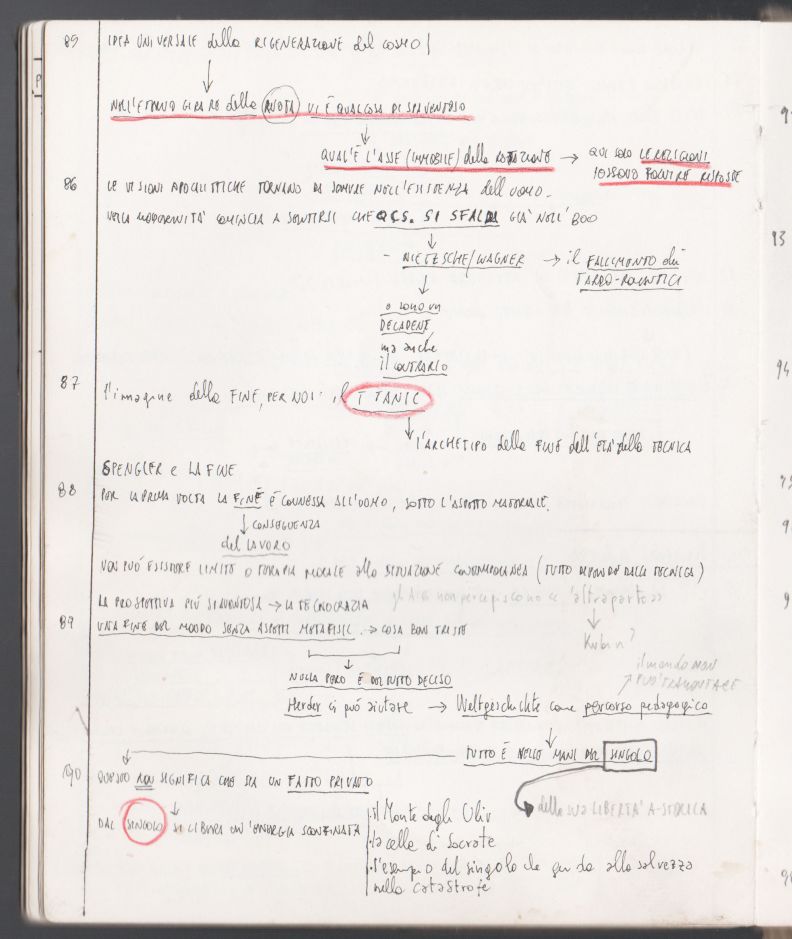 85 IDEA UNIVERSALE della RIGENERAZIONE del COSMO
P
NELL'ETERNO GIRARE della RUOTA VI È QUALCOSA DI SPAVENTOSO
QUAL'È L'ASSE (IMMOBILE) della ROTAZIONE → QUI SOLO LE RELIGIONI
POSSONO FORNIRE RISPOSTE
86 LE VISIONI APOCALITTICHE TORNANO DA SEMPRE NELL'ESISTENZA dell'UOMO.
NELLA MODERNITÀ COMINCIA A SENTIRSI CHE QCS. SI SFALDA GIÀ NELL'800
- NIETZSCHE/WAGNER → il FALLIMENTO dei
TARDO-ROMANTICI
io sono un
DECADENTE
ma anche
il CONTRARIO
87 l'imagine della FINE, PER NOI: il TITANIC
l'ARCHETIPO della FINE dell'ETÀ della TECNICA
SPENGLER e LA FINE
88 PER LA PRIMA VOLTA LA FINE È CONNESSA ALL'UOMO, SOTTO L'ASPETTO MATERIALE.
CONSEGUENZA
del LAVORO
NON PUÒ ESISTERE LIMITE O TERAPIA MORALE alla SITUAZIONE CONTEMPORANEA (TUTTO DIPENDE DALLA TECNICA)
LA PROSPETTIVA PIÙ SPAVENTOSA → LA TECNOCRAZIA
gli non percepiscono l'altraparte >>
89 UNA FINE DEL MONDO SENZA ASPETTI METAFISICI. → COSA BEN TRISTE
Kubin?
NULLA PERÒ È DEL TUTTO DECISO
il mondo NON
PUÒ TRAMONTARE
Herder ci può aiutare → Weltgeschichte come percorso pedagogico
TUTTO È NELLE MANI DEL SINGOLO
90 QUESTO NON SIGNIFICA CHE SIA UN FATTO PRIVATO
della SUA LIBERTÀ A-STORICA
DAL SINGOLO SI LIBERA UN'ENERGIA SCONFINATA
• il Monte degli Ulivi
• la cella di Socrate
• l'esempio del singolo che guida alla salvezza
nella catastrofe
93
94